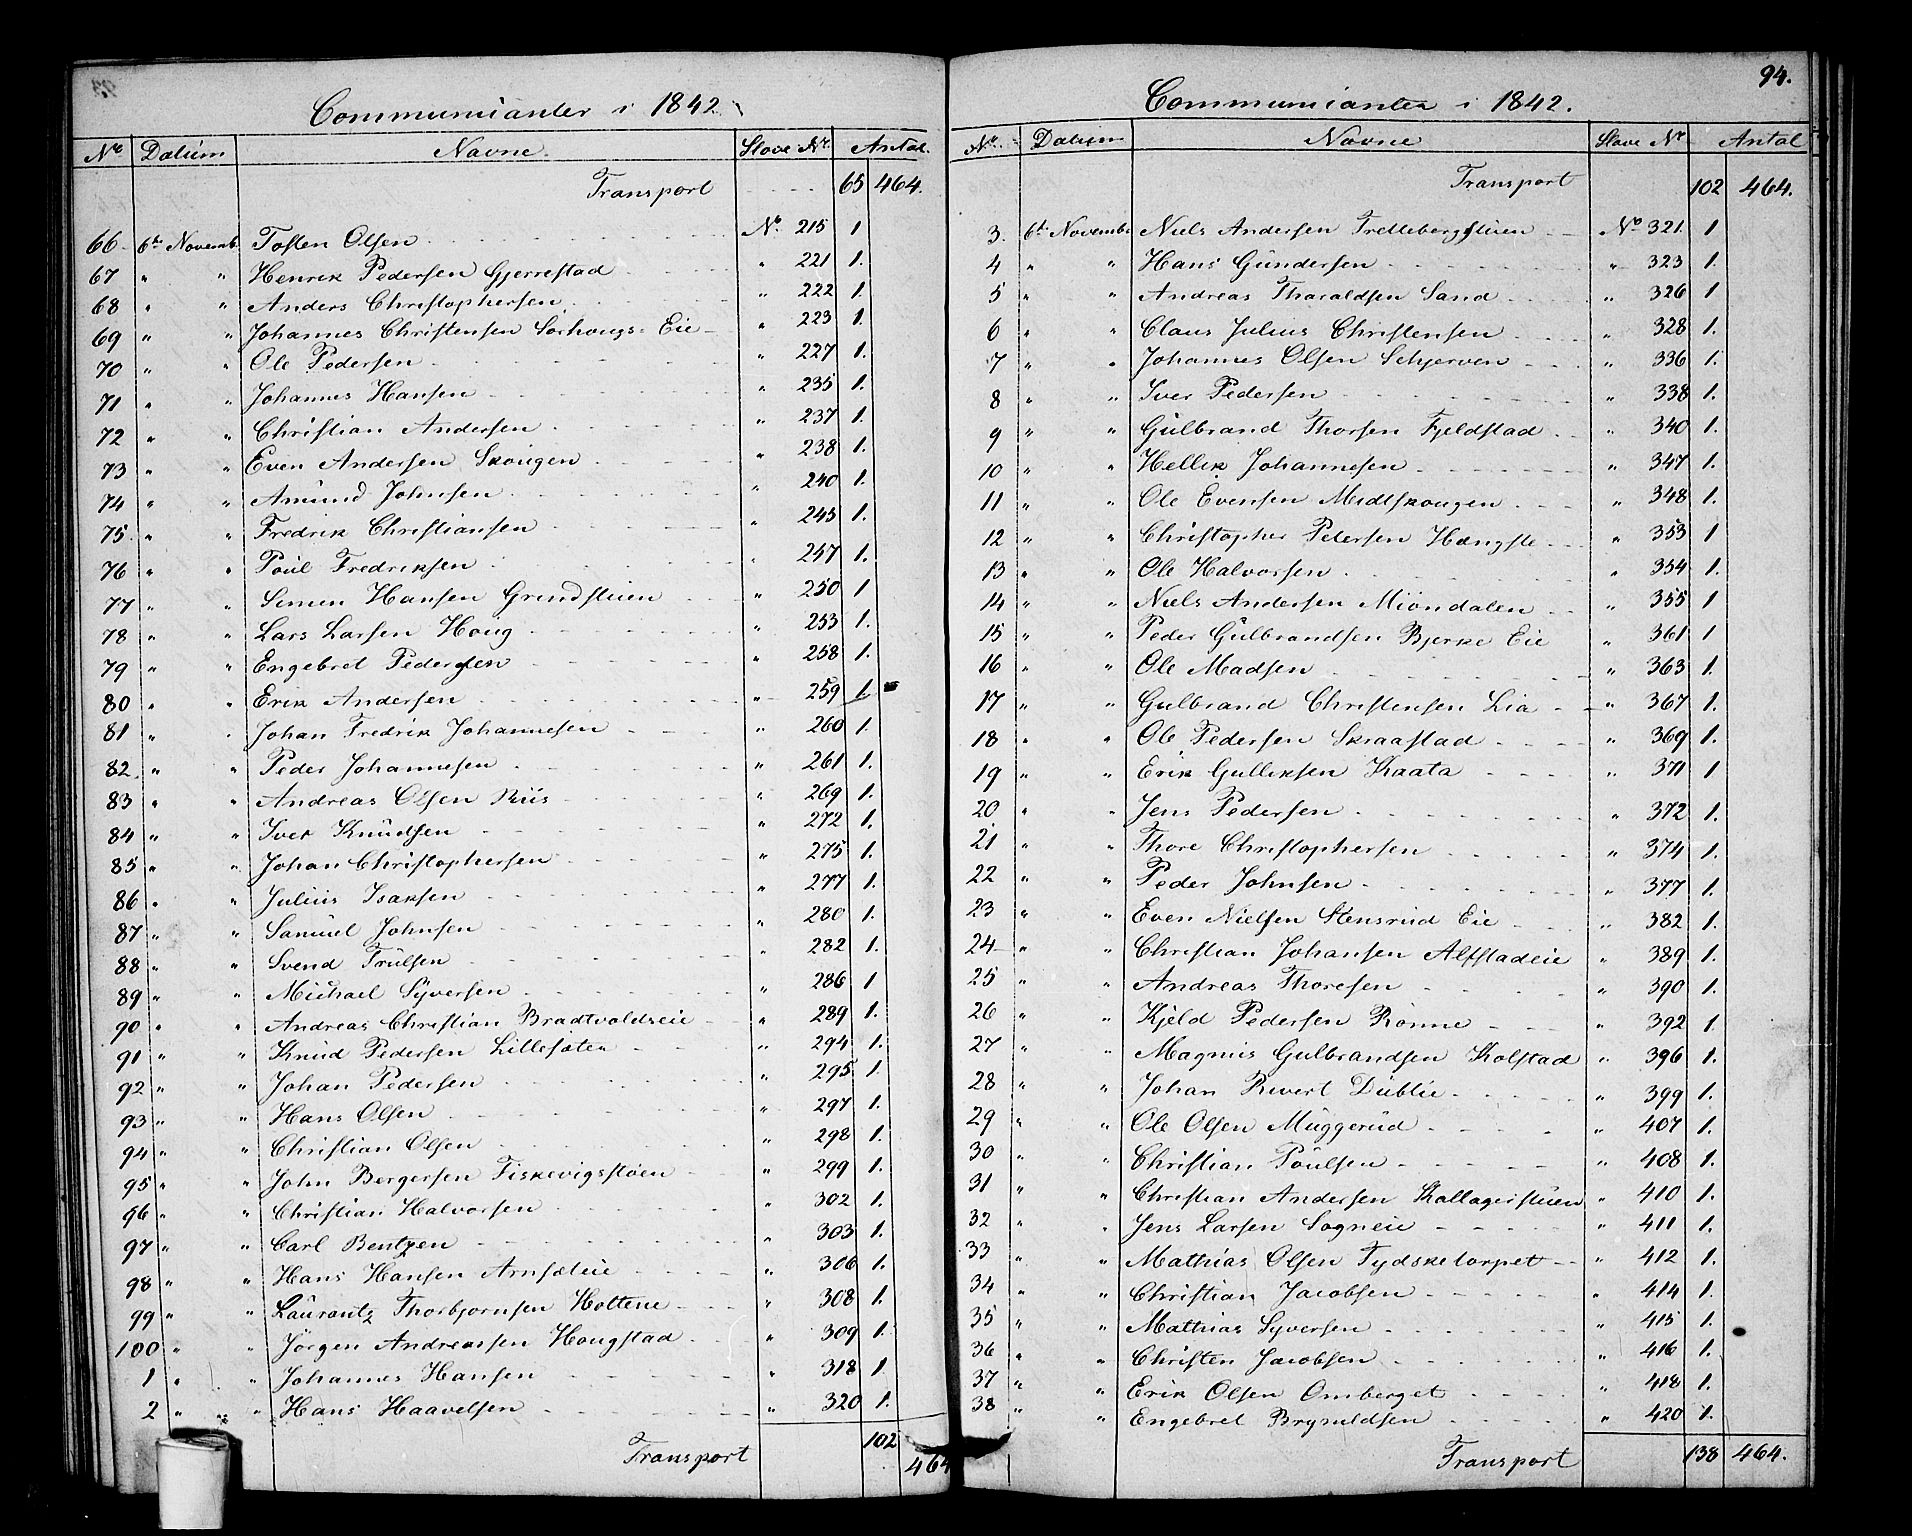 Communianter i 1842.
No Datum Navne. Slave No. Antal.
Transport 65 464.
66. 6te Novemb. Tosten Olsen No. 215 1
67 " " Henrik Pedersen Gjerrestad " 221 1.
68 " " Anders Christophersen " 222 1.
69 " " Johannes Christensen Sørhougs Eie " 223 1.
70 " " Ole Pedersen " 227 1.
71 " " Johannes Hansen " 235 1.
72 " " Christian Andersen " 237 1.
73 " " Even Andersen Skougen " 238 1.
74 " " Amund Johnsen " 240 1.
75. " " Fredrik Christiansen " 245 1.
76 " " Poul Fredriksen " 247 1.
77 " " Simen Hansen Grindstuen " 250 1
78 " " Lars Larsen Houg " 253 1.
79 " " Engebret Pedersen " 258 1.
80 " " Erik Andersen " 259 1
81 " " Johan Fredrik Johannesen " 260 1.
82. " " Peder Johannesen " 261 1.
83 " " Andreas Olsen Riis " 269 1.
84 " " Iver Knudsen " 272 1.
85 " " Johan Christophersen " 275 1.
86 " " Julius Isaksen " 277 1.
87 " " Samuel Johnsen " 280 1.
88 " " Svend Trulsen " 282 1.
89 " " Michael Syversen " 286 1
90 " " Andreas Christian Bradtvoldseie " 289 1.
91 " " Knud Pedersen Lillesæter " 294 1.
92 " " Johan Pedersen " 295 1.
93 " " Hans Olsen " 297 1.
94 " " Christian Olsen " 298 1.
95 " " John Bergersen Fiskevigstøen " 299 1.
96 " " Christian Halvorsen " 302 1.
97 " " Carl Bentzen " 303 1.
98 " " Hans Hansen Arnsæteie " 306 1.
99 " " Laurantz Thorbjørnsen Holtene " 308 1.
100 " " Jörgen Andreassen Hougstad " 309 1.
1 " " Johannes Hansen " 318 1
2 " " Hans Haavelsen " 320 1.
Transport 102 464
94.
Communianter i 1842.
No. Datum Navne Slave No Antal
Transport 102 464.
3. 6te Novembr Niels Andersen Trettebergstuen No 321. 1
4 " " Hans Gundersen " 323 1.
5 " " Andreas Tharaldsen Sand " 326 1
6 " " Claus Julius Christensen " 328 1.
7 " " Johannes Olsen Schjerven " 336 1.
8 " " Iver Pedersen " 338 1.
9 " " Gulbrand Thorsen Fjeldstad " 340 1.
10 " " Hellik Johannesen " 347 1.
11 " " Ole Evensen Midtskougen " 348 1.
12 " " Christopher Pedersen Hængsle " 353 1
13 " " Ole Halvorsen " 354 1.
14 " " Niels Andersen Miöndalen " 355 1
15 " " Peder Gulbrandsen Bjerke Eie " 361 1
16 " " Ole Madsen " 363 1.
17 " " Gulbrand Christensen Lia " 367 1.
18 " " Ole Pedersen Skraastad " 369 1.
19 " " Erik Gulliksen Kaata " 371 1
20 " " Jens Pedersen " 372 1.
21 " " Thore Christophersen " 374 1.
22 " " Peder Johnsen " 377 1.
23 " " Even Nielsen Stensrud Eie " 382 1.
24 " " Christian Johansen Alfstadeie " 389 1.
25 " " Andreas Thoresen " 390 1.
26 " " Kjeld Pedersen Rönne " 392 1.
27 " " Magnus Gulbrandsen Kolstad " 396 1.
28 " " Johan Rivert Dublie " 399 1.
29 " " Ole Olsen Muggerud " 407 1.
30 " " Christian Poulsen " 408 1.
31 " " Christian Andersen Kallagerstuen " 410 1.
32 " " Jens Larsen Sogneie " 411 1.
33 " " Mathias Olsen Tydsketorpet " 412 1.
34 " " Christian Jacobsen " 414 1.
35 " " Mathias Syversen " 415 1.
36 " " Christen Jacobsen " 416 1.
37 " " Erik Olsen Omberget " 418 1.
38 " " Engebret Brynildsen " 420 1.
Transport 138 464.